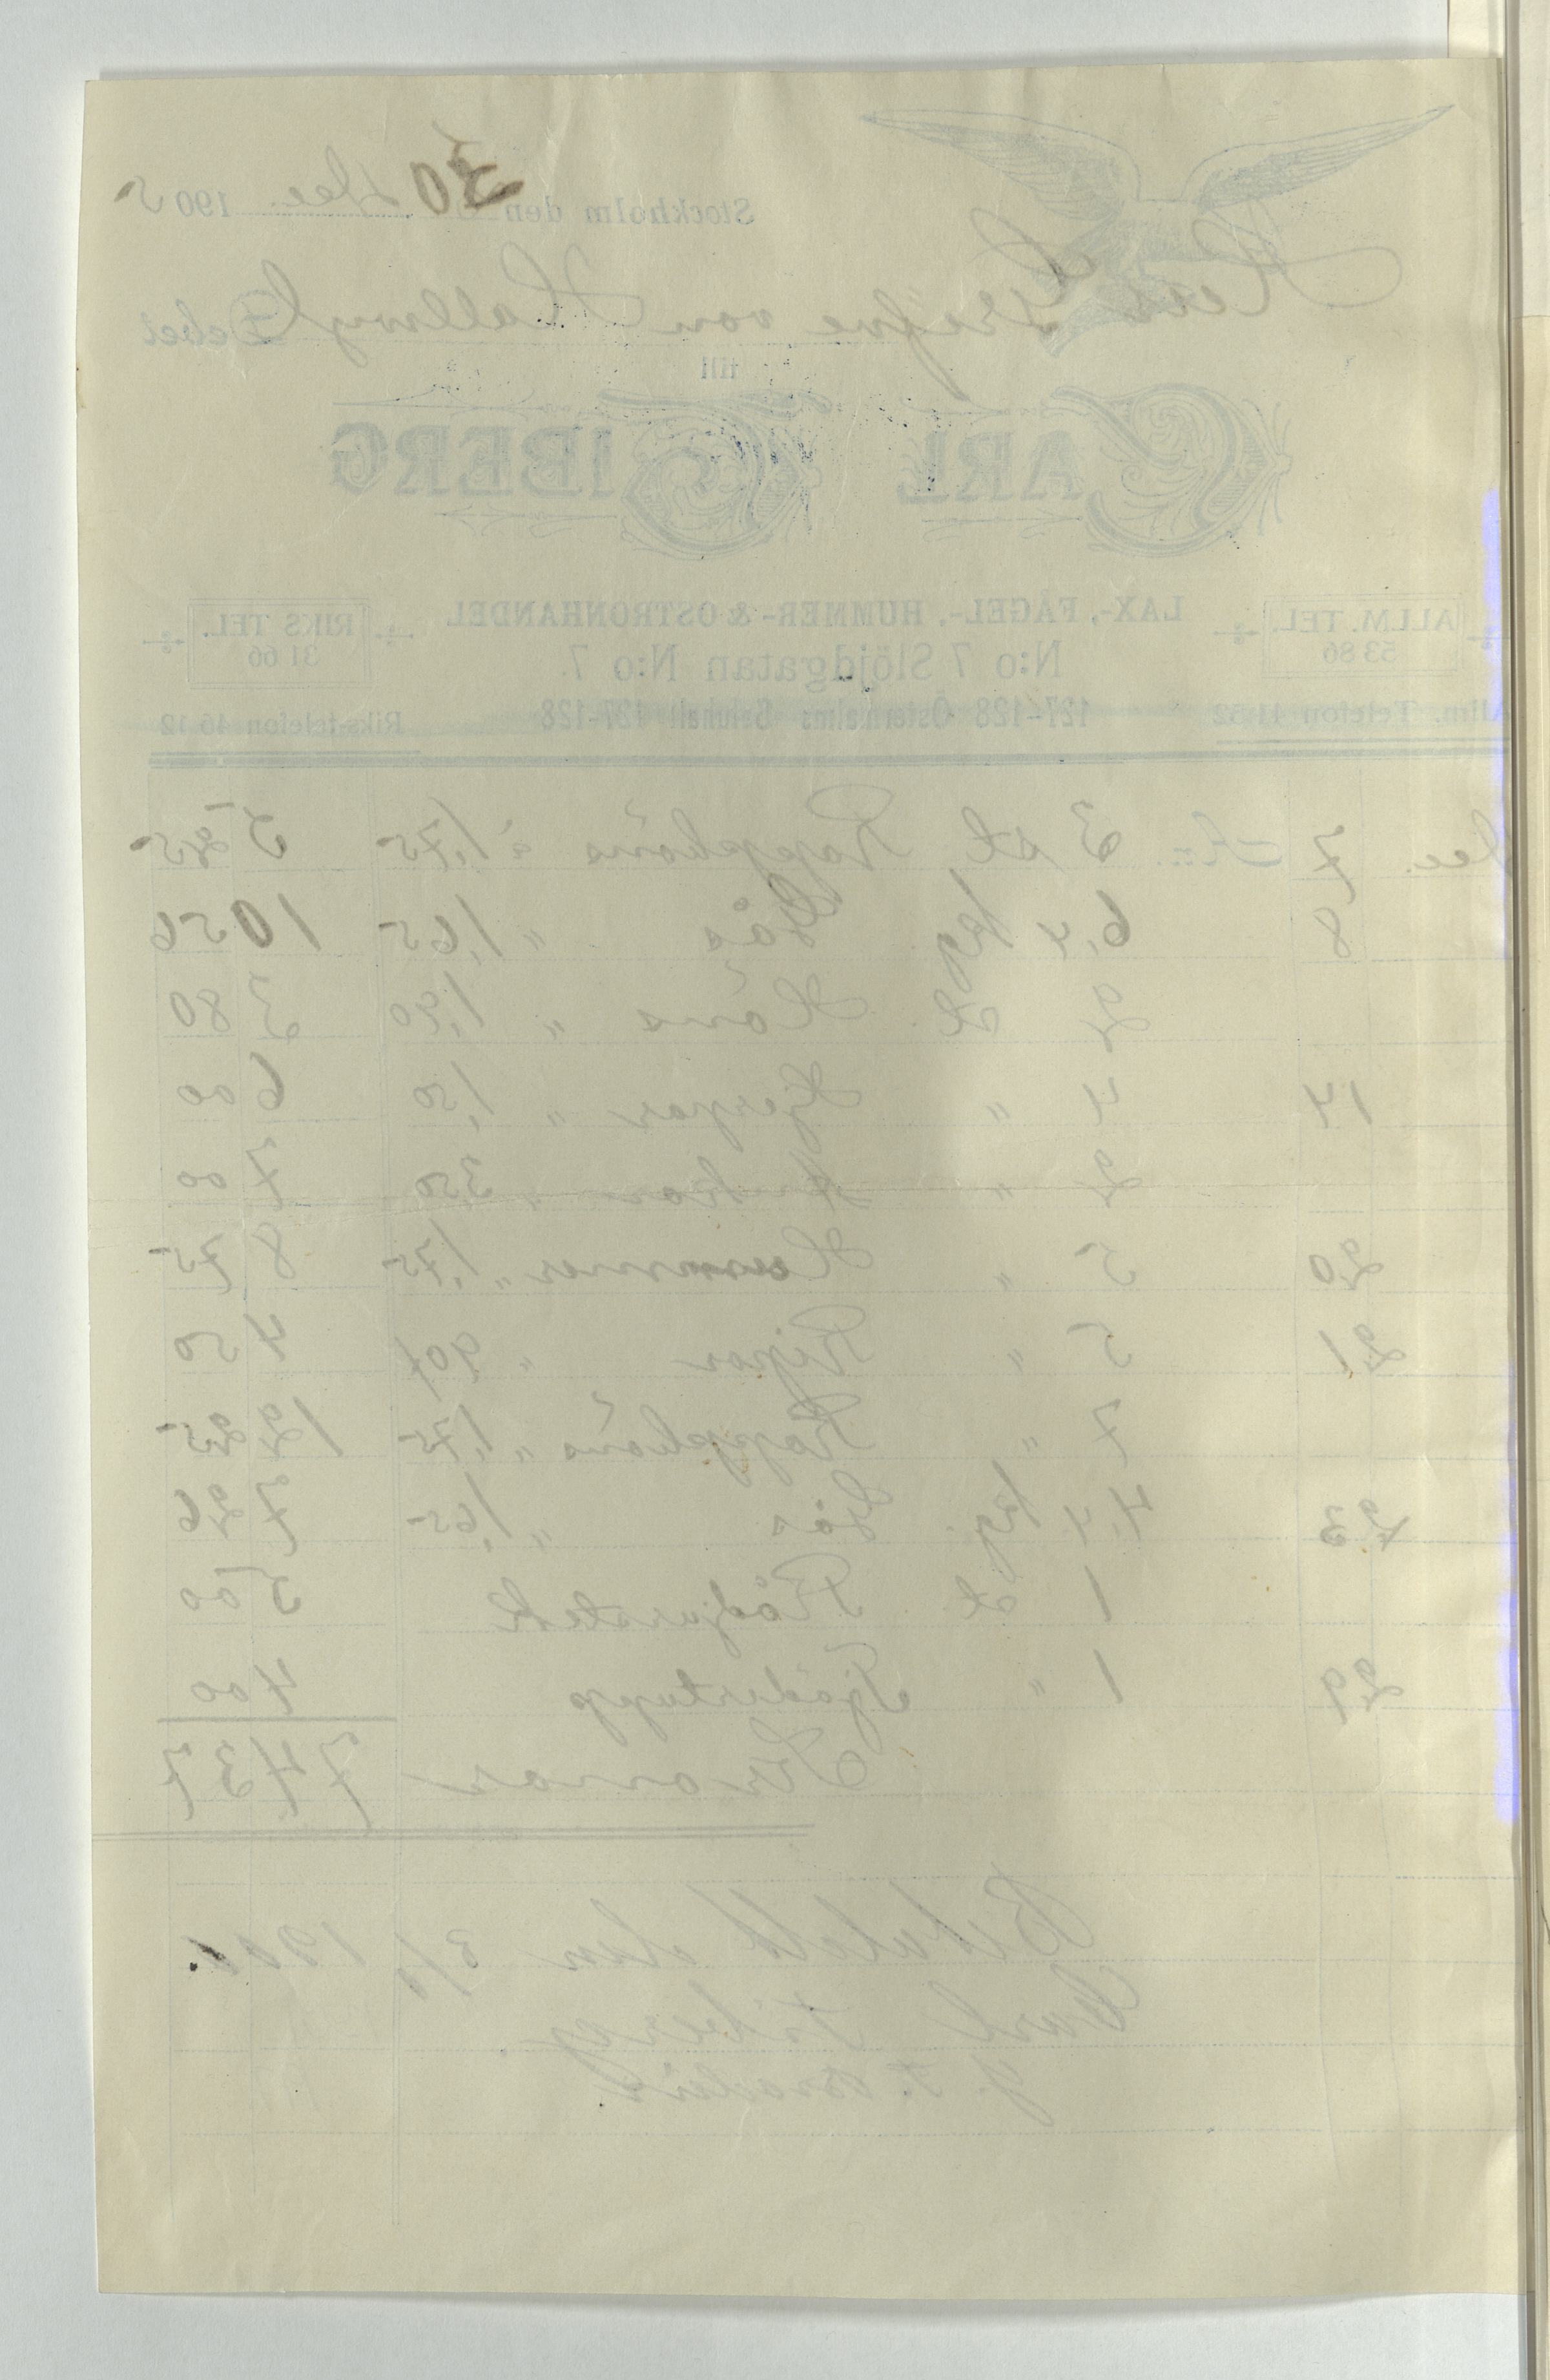 Stockholm den 30 Dec. 1905
Herr Grefve von Hallwyl Debet
till
CARL TIBERG
LAX-, FÅGEL-, HUMMER- & OSTRONHANDEL
ALLM. TEL. 53 86
RIKS TEL. 31 66
N:o 7 Slöjdgatan N:o 7.
Allm. Telefon 11 52 127-128 Östermalms Saluhall 127-128 Riks-telefon 46 12
Dec. 7 3 st. Rapphöns à 1,75 5 25
8 6,4 kg Gås " 1,65 10 56
2 st. Höns " 1,90 3 80
14 4 " Hjerpar " 1,50 6 00
2 " 3,50 7 00
20 5 " Hummer " 1,75 8 75
21 5 " Ripor " 90 4 50
7 " Rapphöns " 1,75 12 25
23 4,4 kg. Gås " 1,65 7 26
1 st Rådjurstek 5 00
29 1 " Tjädertupp 4 00
Kronor 74 37
Betalt den 3/1 1906
Carl Tiberg